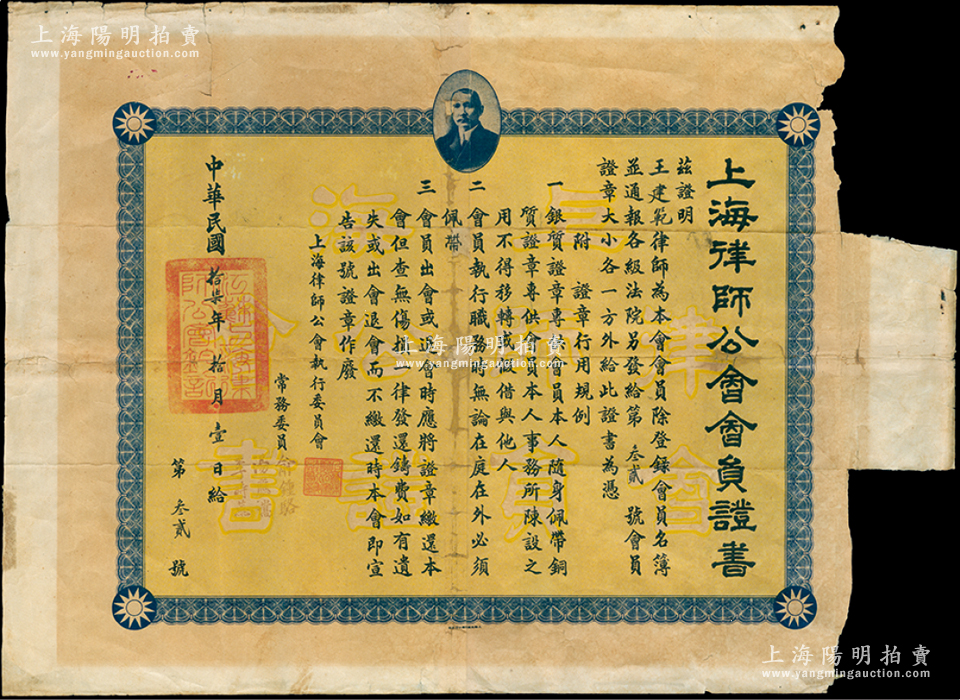 上海陽明拍賣
www.yangmingauction.com
上海律師公會會員證書
茲證明
王建範律師為本會會員除登錄會員名簿
並通報各級法院另發給第叁貳號會員
證章大小各一方外給此證書為憑
附證章行用規例
一銀質證章專供會員本人隨身佩帶銅
質證章專供會員本人事務所陳設之
用不得移轉或出借與他人
二會員執行職務時無論在庭在外必須
佩帶
三會員出會或退會時應將證章繳還本
會但查無傷損一律發還鑄費如有遺
失或出會退會而不繳還時本會即宣
告該號證章作廢
上海律師公會執行委員會
常務委員
中華民國拾柒年拾月壹日給
第叁貳號
上海陽明拍賣
www.yangmingauction.com
上海陽明拍賣
www.yangmingauction.com